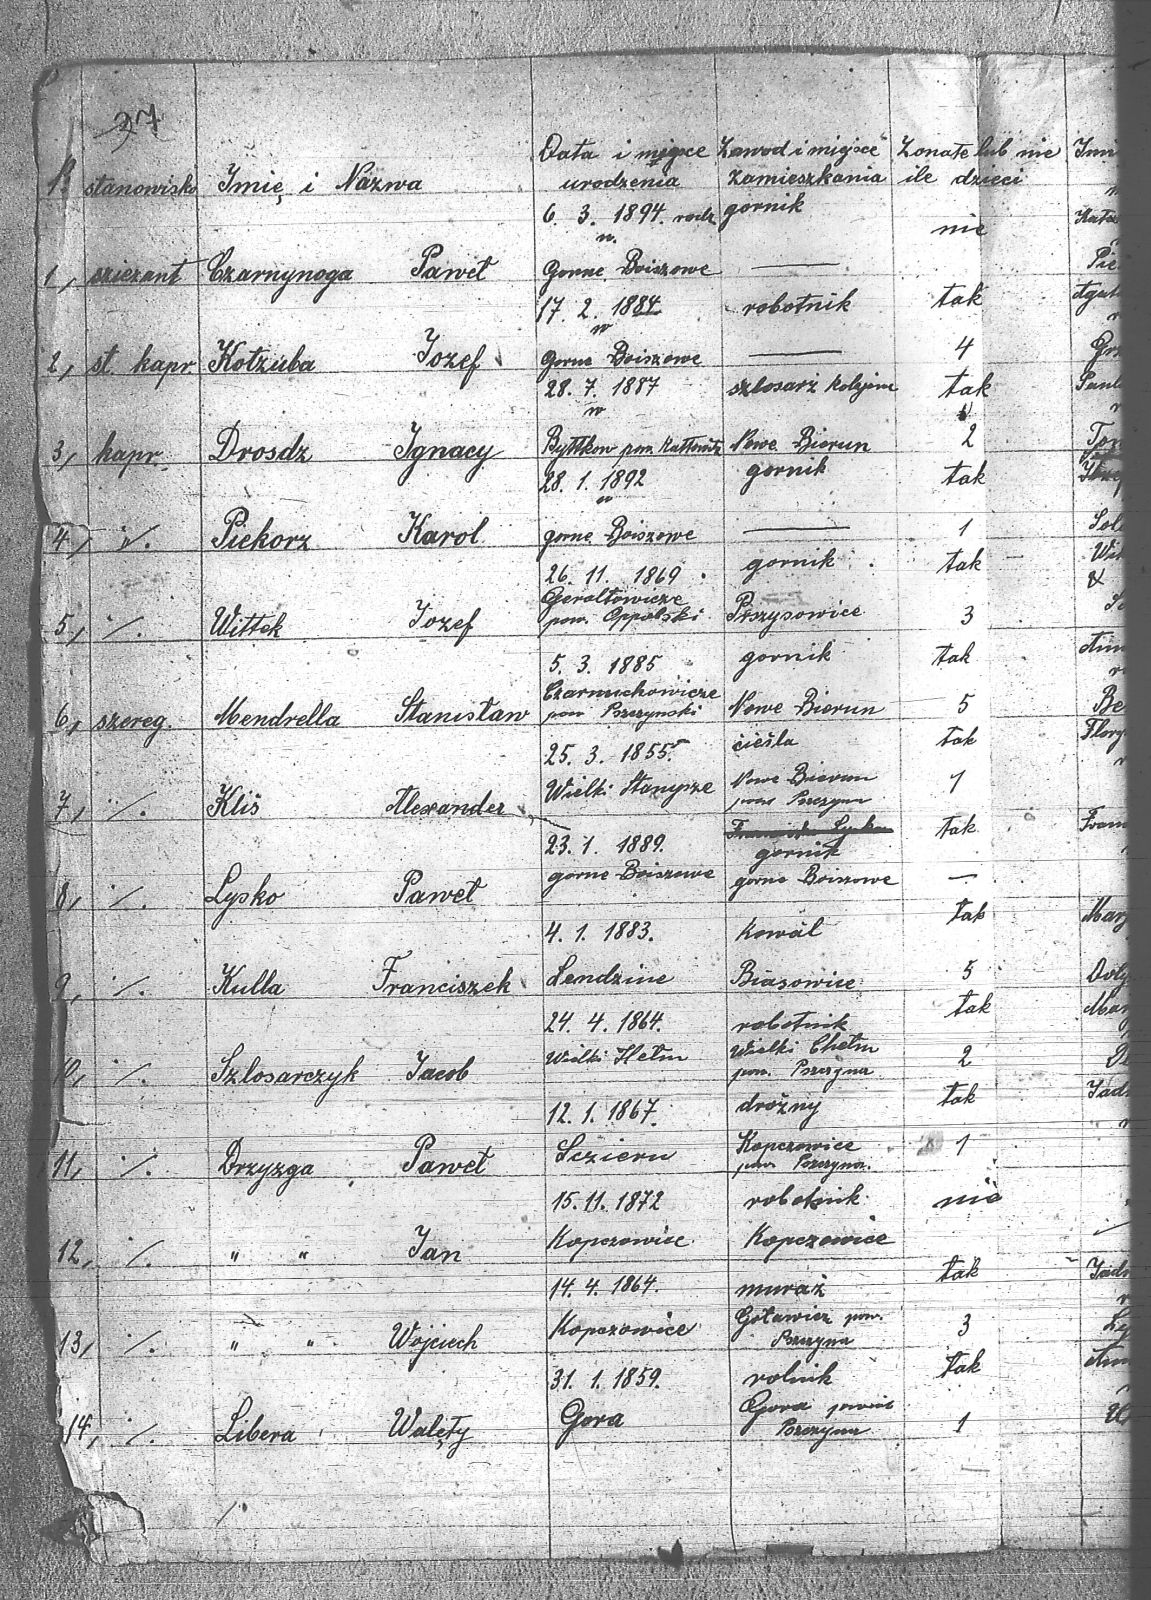 37
Data i miejsce Zawod i miejsce Zonate lub nie
stanowisko Imię i Nazwa urodzenia zamieszkania ile dzieci
6. 3. 1894 rodz gornik nie
w.
1, Czarnynoga Paweł Gorne Boiszowe —
17. 2. 1884 robotnik tak
w
2, st. kapr Kotzuba Jozef Gorne Boiszowe — 4
28. 7. 1887 szlosarz tak
w
3, kapr. Drosdz Ignacy Byttkow pow. Kattowitz Nowe Bierun 2
28. 1. 1892 gornik tak
w
4, ". Piekorz Karol gorne Boiszowe — 1
26. 11. 1869 gornik tak
Gerałtowicze
5, ". Wittek Jozef pow. Oppolski 3
5. 3. 1885 gornik tak
Czarnuchowicze
6, szereg. Mendrella Stanisław pow Pszczynski Nowe Bierun 5
25. 3. 1855 cieśla tak
Wielki Nowe Bierun 1
7, "/. Kliś Alexander pow Pszczyna
23. 1. 1889. gornik tak
8, "/. Lysko Paweł gorne Boiszowe gorne Boiszowe —
4. 1. 1883. Kowal tak
9, "/. Kulla Franciszek Lendzine Biasowice 5
24. 4. 1864. robotnik tak
Wielki Hełm Wielki Chełm 2
10, "/. Szlosarczyk Jacob pow. Pszczyna
12. 1. 1867. drożny tak
Kopczowice 1
11, "/. Drzyzga Paweł pow. Pszczyna.
15. 11. 1872 robotnik nie
12, "/. " " Jan Kopczowice Kopczowice
14. 4. 1864. muraż tak
Kopczowice pow. 3
13, "/. " " Wojciech Pszczyna
31. 1. 1859. rolnik tak
Gora Gora powiat
14, "/. Libera Walęty Pszczyna 1